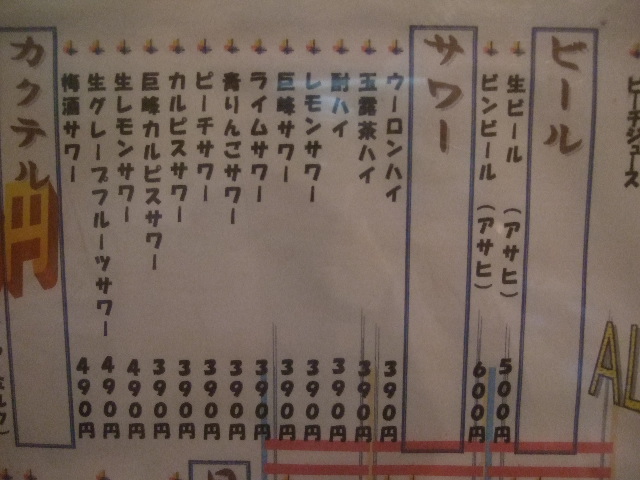 ピーチジュース
ビール
生ビール (アサヒ) 500円
ビンビール (アサヒ) 600円
サワー
ウーロンハイ 390円
玉露茶ハイ 390円
酎ハイ 390円
レモンサワー 390円
巨峰サワー 390円
ライムサワー 390円
青りんごサワー 390円
ピーチサワー 390円
カルピスサワー 390円
巨峰カルピスサワー 390円
生レモンサワー 490円
生グレープフルーツサワー 490円
梅酒サワー 490円
カクテル
円
AL